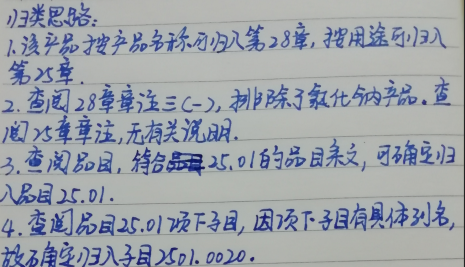 归类思路:
1.该产品按产品名称可归入第28章,按用途可归入
第25章.
2.查阅28章章注三(一),排除了氯化钠产品.查
阅25章章注,无有关说明.
3.查阅品目,符合25.01的品目条文,可确定归
入品目25.01.
4.查阅品目25.01项下子目,因项下子目有具体列名,
故确定归入子目2501.0020.